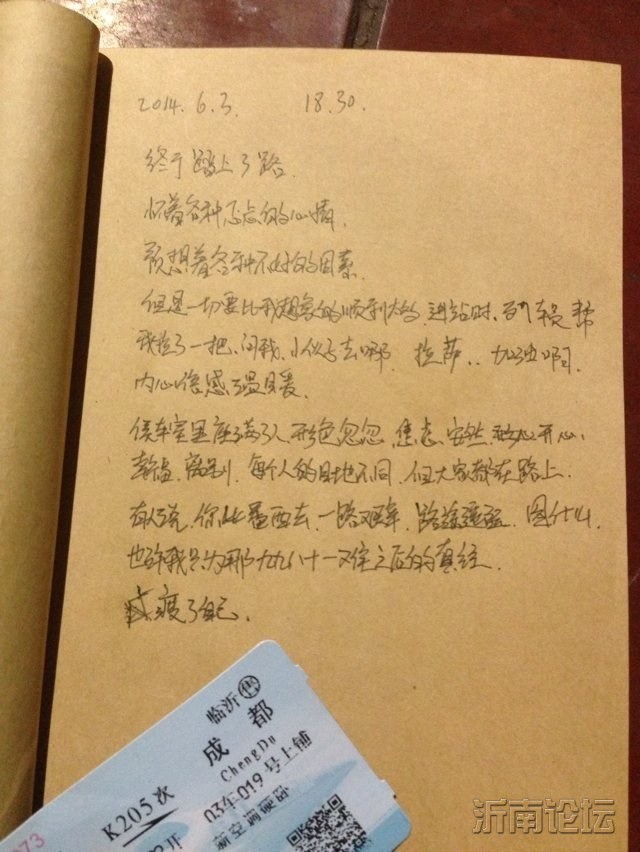 2014.6.3. 18.30.
终于踏上了路.
怀着各种忐忑的心情.
预想着各种不好的因素.
但是一切要比我想象的顺利太多,进站时,列车员帮
我拉了一把,问我,小伙子去哪. 拉萨.. 加油啊.
内心倍感温暖.
侯车室里座满了人,形色忽忽,焦虑,安然,开心,
离别,每个人的目地不同,但大家都在路上.
有人说,你此番西去,一路艰辛,路途遥远,图什么,
也许我只为那九九八十一难之后的真经.
渡了自己.
临沂 售
成都
ChengDu
K205次
03车019号上铺
新空调硬卧
开
073
沂南论坛